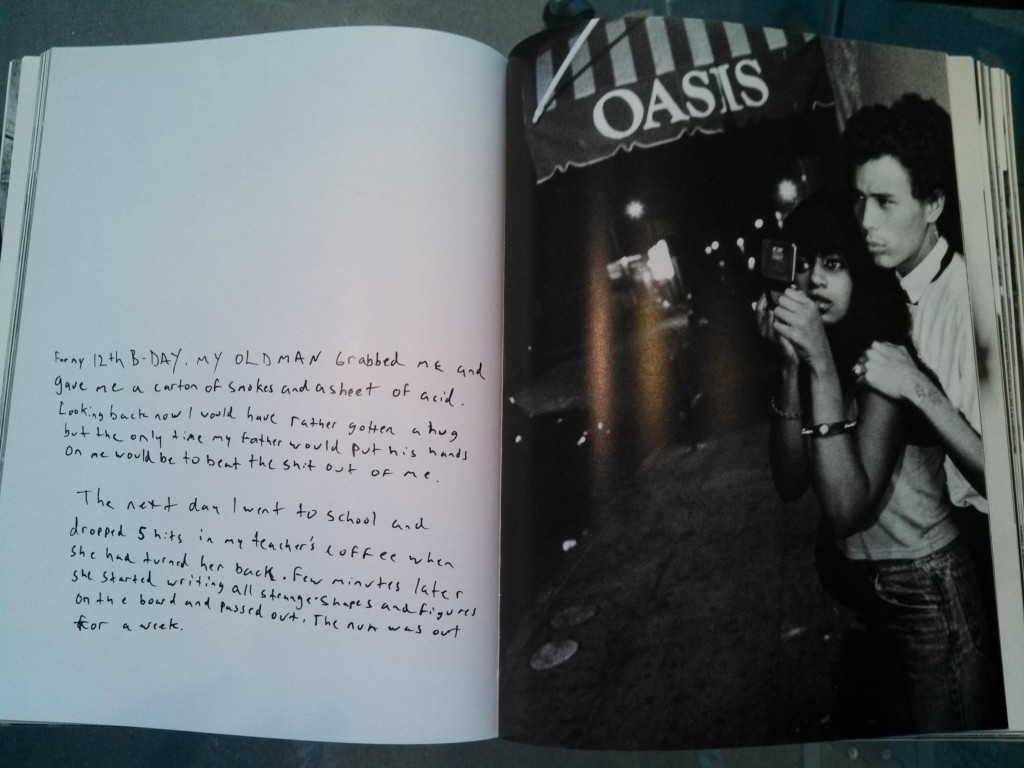 For my 12th B-DAY, MY OLD MAN Grabbed ME and
gave me a carton of smokes and a sheet of acid.
Looking back now I would have rather gotten a hug
but the only time my father would put his hands
on me would be to beat the shit out of me.
The next day I went to school and
dropped 5 hits in my teacher's coffee when
she had turned her back. Few minutes later
she started writing all strange shapes and figures
on the board and passed out. The nun was out
for a week.
OASIS